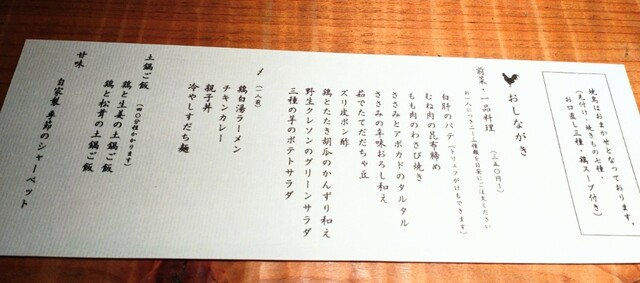 焼鳥はおまかせとなっております。
(先付け・焼きもの七種・
お口直し三種・鶏スープ付き)
おしながき
前菜・一品料理 (三五〇円〜)
お一人につき二〜三種類を目安にご注文ください
白肝のパテ (トリュフがけもできます)
むね肉の昆布締め
もも肉のわさび焼き
ささみとアボカドのタルタル
ささみの辛味おろし和え
茹でたてだだちゃ豆
ズリ皮ポン酢
鶏とたたき胡瓜のかんずり和え
野生クレソンのグリーンサラダ
三種の芋のポテトサラダ
〆 (一人前)
鶏白湯ラーメン
チキンカレー
親子丼
冷やしすだち麺
土鍋ご飯 (四〇分程かかります)
鶏と生姜の土鍋ご飯
鶏と松茸の土鍋ご飯
甘味
自家製 季節のシャーベット